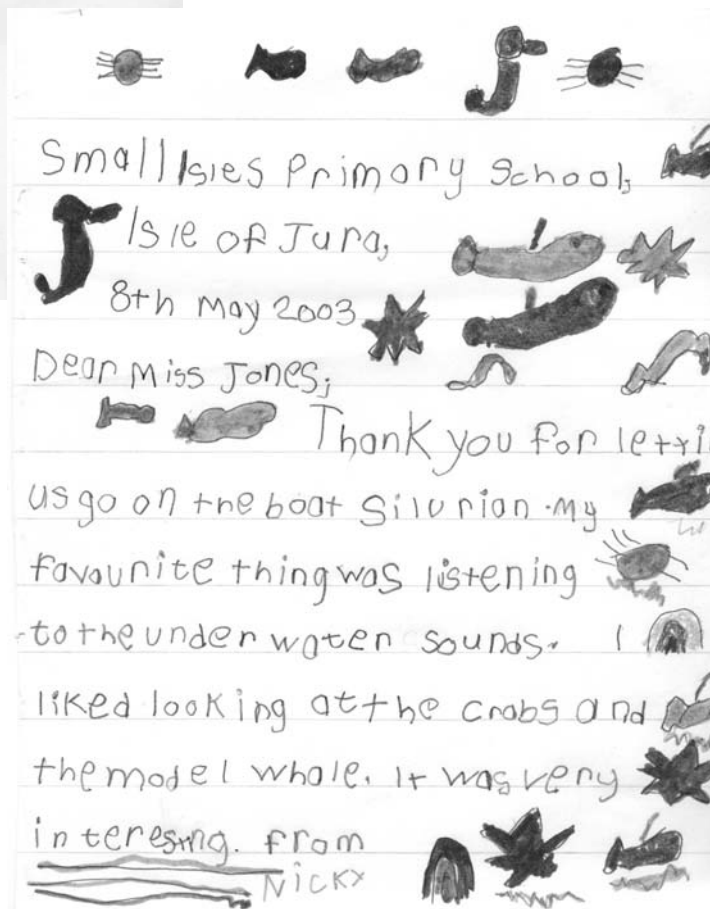 Small Isles Primary School,
Isle of Jura,
8th May 2003
Dear Miss Jones,
Thank you for letti
us go on the boat Silurian. My
favourite thing was listening
to the under water sounds. I
liked looking at the crabs and
the model whale. It was very
interesting. from
Nicky